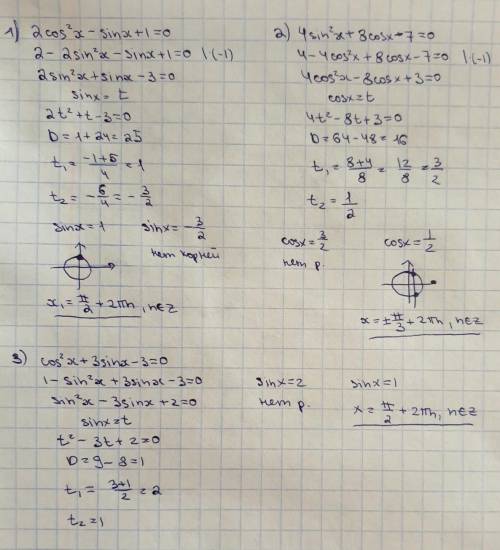 1) 2cos²x - sinx + 1 = 0
2 - 2sin²x - sinx + 1 = 0 | (-1)
2sin²x + sinx - 3 = 0
sinx = t
2t² + t - 3 = 0
D = 1 + 24 = 25
t₁ = (-1+5)/4 = 1
t₂ = -6/4 = -3/2
sinx = 1    sinx = -3/2
нет корней
x₁ = π/2 + 2πn, n∈Z
2) 4sin²x + 8cosx - 7 = 0
4 - 4cos²x + 8cosx - 7 = 0 | (-1)
4cos²x - 8cosx + 3 = 0
cosx = t
4t² - 8t + 3 = 0
D = 64 - 48 = 16
t₁ = (8+4)/8 = 12/8 = 3/2
t₂ = 1/2
cosx = 3/2    cosx = 1/2
нет р.
x = ±π/3 + 2πn, n∈Z
3) cos²x + 3sinx - 3 = 0
1 - sin²x + 3sinx - 3 = 0
sin²x - 3sinx + 2 = 0
sinx = t
t² - 3t + 2 = 0
D = 9 - 8 = 1
t₁ = (3+1)/2 = 2
t₂ = 1
sinx = 2    sinx = 1
нет р.    x = π/2 + 2πn, n∈Z